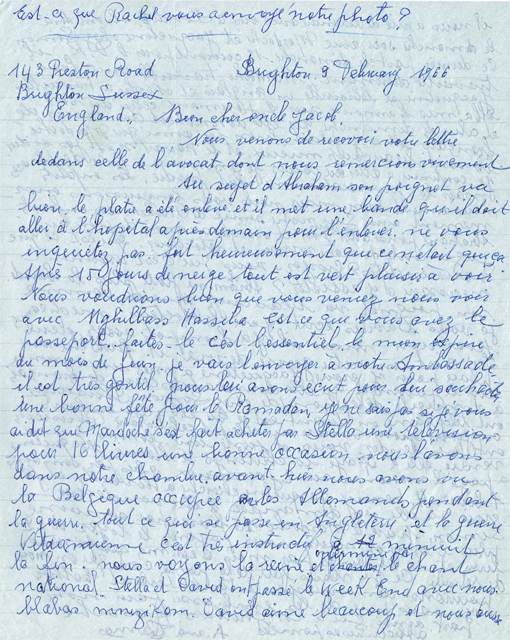 Est-ce que Rachel vous a envoyé notre photo?
143 Preston Road Brighton 9 February 1966
Brighton Sussex
England, Bien cher oncle Jacob.
Nous venons de recevoir votre lettre
dedans celle de l'avocat dont nous remercions vivement
Au sujet d'Abraham son poignet va
bien, le platre a été enlevé et il met une bande qu'il doit
aller à l'hopital après demain pour l'enlever, ne vous
inquietez pas, fort heureusement que cen'etait que ça
Après 15 jours de neige tout est vert plaisir à voir
Nous voudrions bien que vous veniez nous voir
avec Hasseiba, est-ce que vous avez le
passeport, faites-le c'est l'essentiel, le mien expire
au mois de Juin, je vais l'envoyer à notre Ambassade
il est très gentil, nous lui avons écrit pour lui souhaiter
une bonne fête pour le Ramadan, je ne sais pas si je vous
ai dit que Mardochée s'est fait acheter par Stella une télévision
pour 16 livres une bonne occasion, nous l'avons
dans notre chambre, avant-hier nous avons vu
la Belgique occupée par les Allemands pendant
la guerre, tout ce qui se passe en Angleterre, et la guerre
Vietnamienne, c'est très instructif, a minuit
la fin, nous voyons la reine et le chant
national. Stella et David ont passé le Week End avec nous
David aime beaucoup et nous aussi